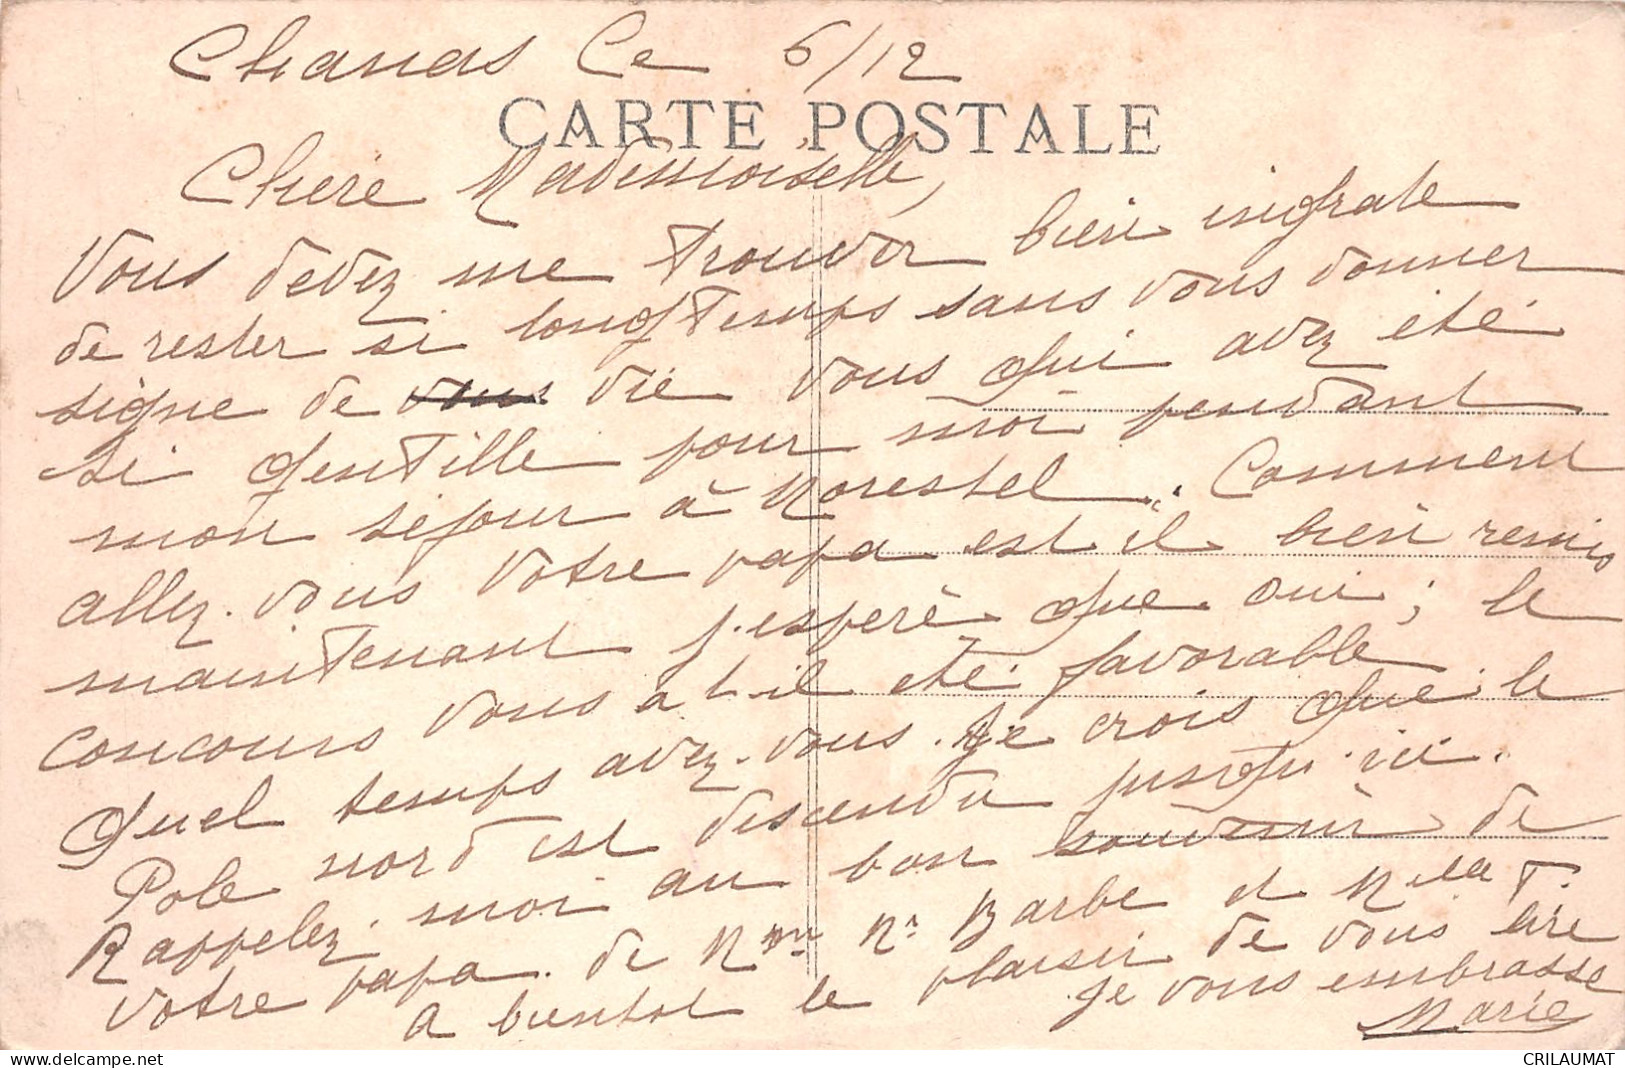 Chanas le 6/12
CARTE POSTALE
Chère Mademoiselle,
Vous devez me trouver bien ingrate
de rester si longtemps sans vous donner
signe de vie vous qui avez été
si gentille pour moi pendant
mon séjour à Morestel. Comment
allez-vous votre papa est il bien remis
maintenant j'espère que oui ; le
concours vous a t-il été favorable
Quel temps avez-vous. Je crois que le
Pole nord est descendu jusqu'ici.
Rappelez-moi au bon souvenir de
votre papa. de Mme Mr Barbe et Mlle T.
A bientot le plaisir de vous lire
Je vous embrasse
Marie
CRILAUMAT